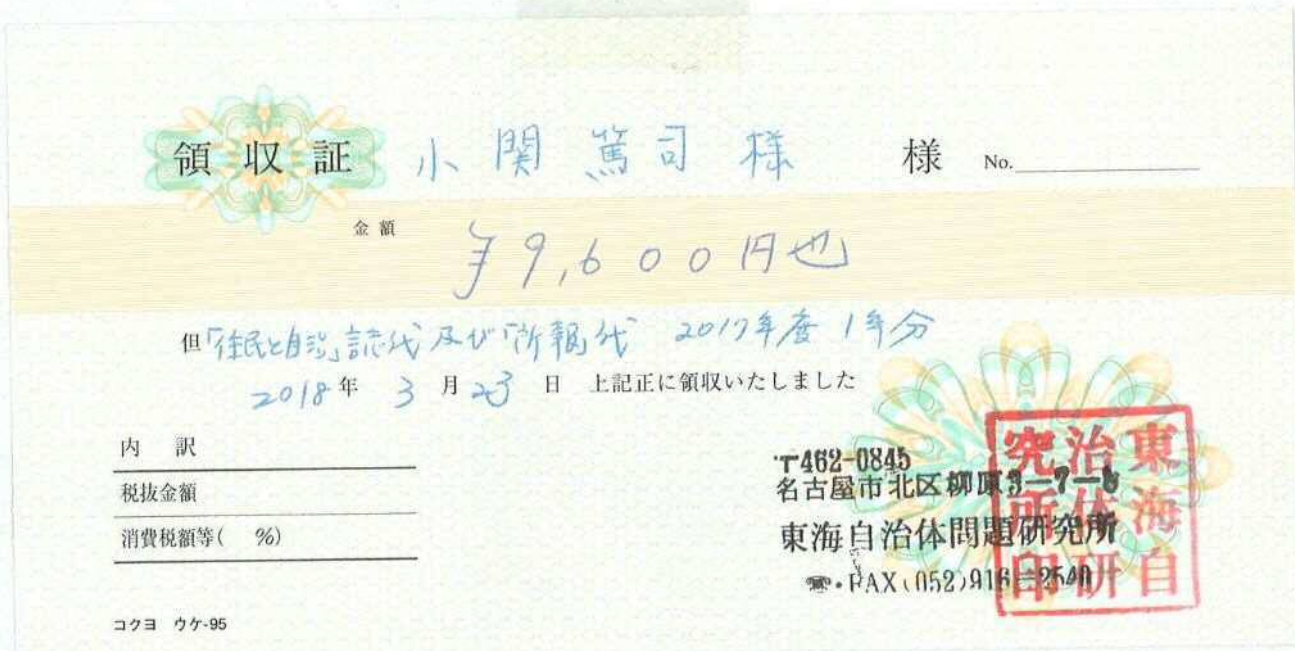 領収証 小関篤司様 様 No.
金額
¥9,600円也
但「住民と自治」誌代及び「所報」代 2017年度1年分
2018年 3月23日 上記正に領収いたしました
内訳
税抜金額
消費税額等( %)
コクヨ ウケ-95
〒462-0845
名古屋市北区柳原3-7-8
東海自治体問題研究所
☎・FAX(052)916-2540
東海自
治体研
究所印